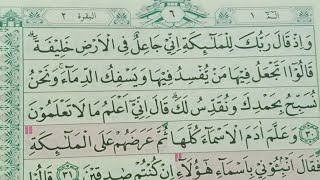 البقرة ٢ ٦ ١
وَإِذْ قَالَ رَبُّكَ لِلْمَلَٰٓئِكَةِ إِنِّي جَاعِلٌ فِي الْأَرْضِ خَلِيفَةً
قَالُوٓا۟ أَتَجْعَلُ فِيهَا مَنْ يُفْسِدُ فِيهَا وَيَسْفِكُ الدِّمَآءَ وَنَحْنُ
نُسَبِّحُ بِحَمْدِكَ وَنُقَدِّسُ لَكَ قَالَ إِنِّيٓ أَعْلَمُ مَا لَا تَعْلَمُونَ
٣٠ وَعَلَّمَ ءَادَمَ الْأَسْمَآءَ كُلَّهَا ثُمَّ عَرَضَهُمْ عَلَى الْمَلَٰٓئِكَةِ
فَقَالَ أَنْبِـُٔونِي بِأَسْمَآءِ هَٰٓؤُلَآءِ إِنْ كُنْتُمْ صَٰدِقِينَ ٣١ قَالُوا۟